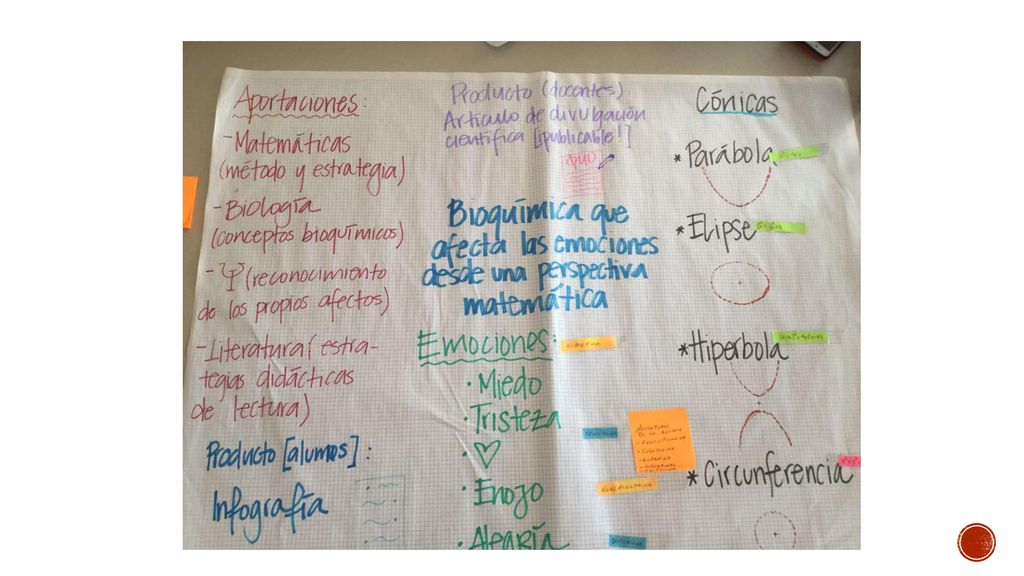 Aportaciones:
-Matemáticas
(método y estrategia)
-Biología
(conceptos bioquímicos)
-Ψ (reconocimiento
de los propios afectos)
-Literatura (estra-
tegias didácticas
de lectura)
Producto [alumos]:
Infografía
Producto (docentes)
Artículo de divulgación
científica [¡publicable!]
Bioquímica que
afecta las emociones
desde una perspectiva
matemática
Emociones:
·Miedo
·Tristeza
·♡
·Enojo
·Alegría
Cónicas
*Parábola
*Elipse
*Hiperbola
*Circunferencia